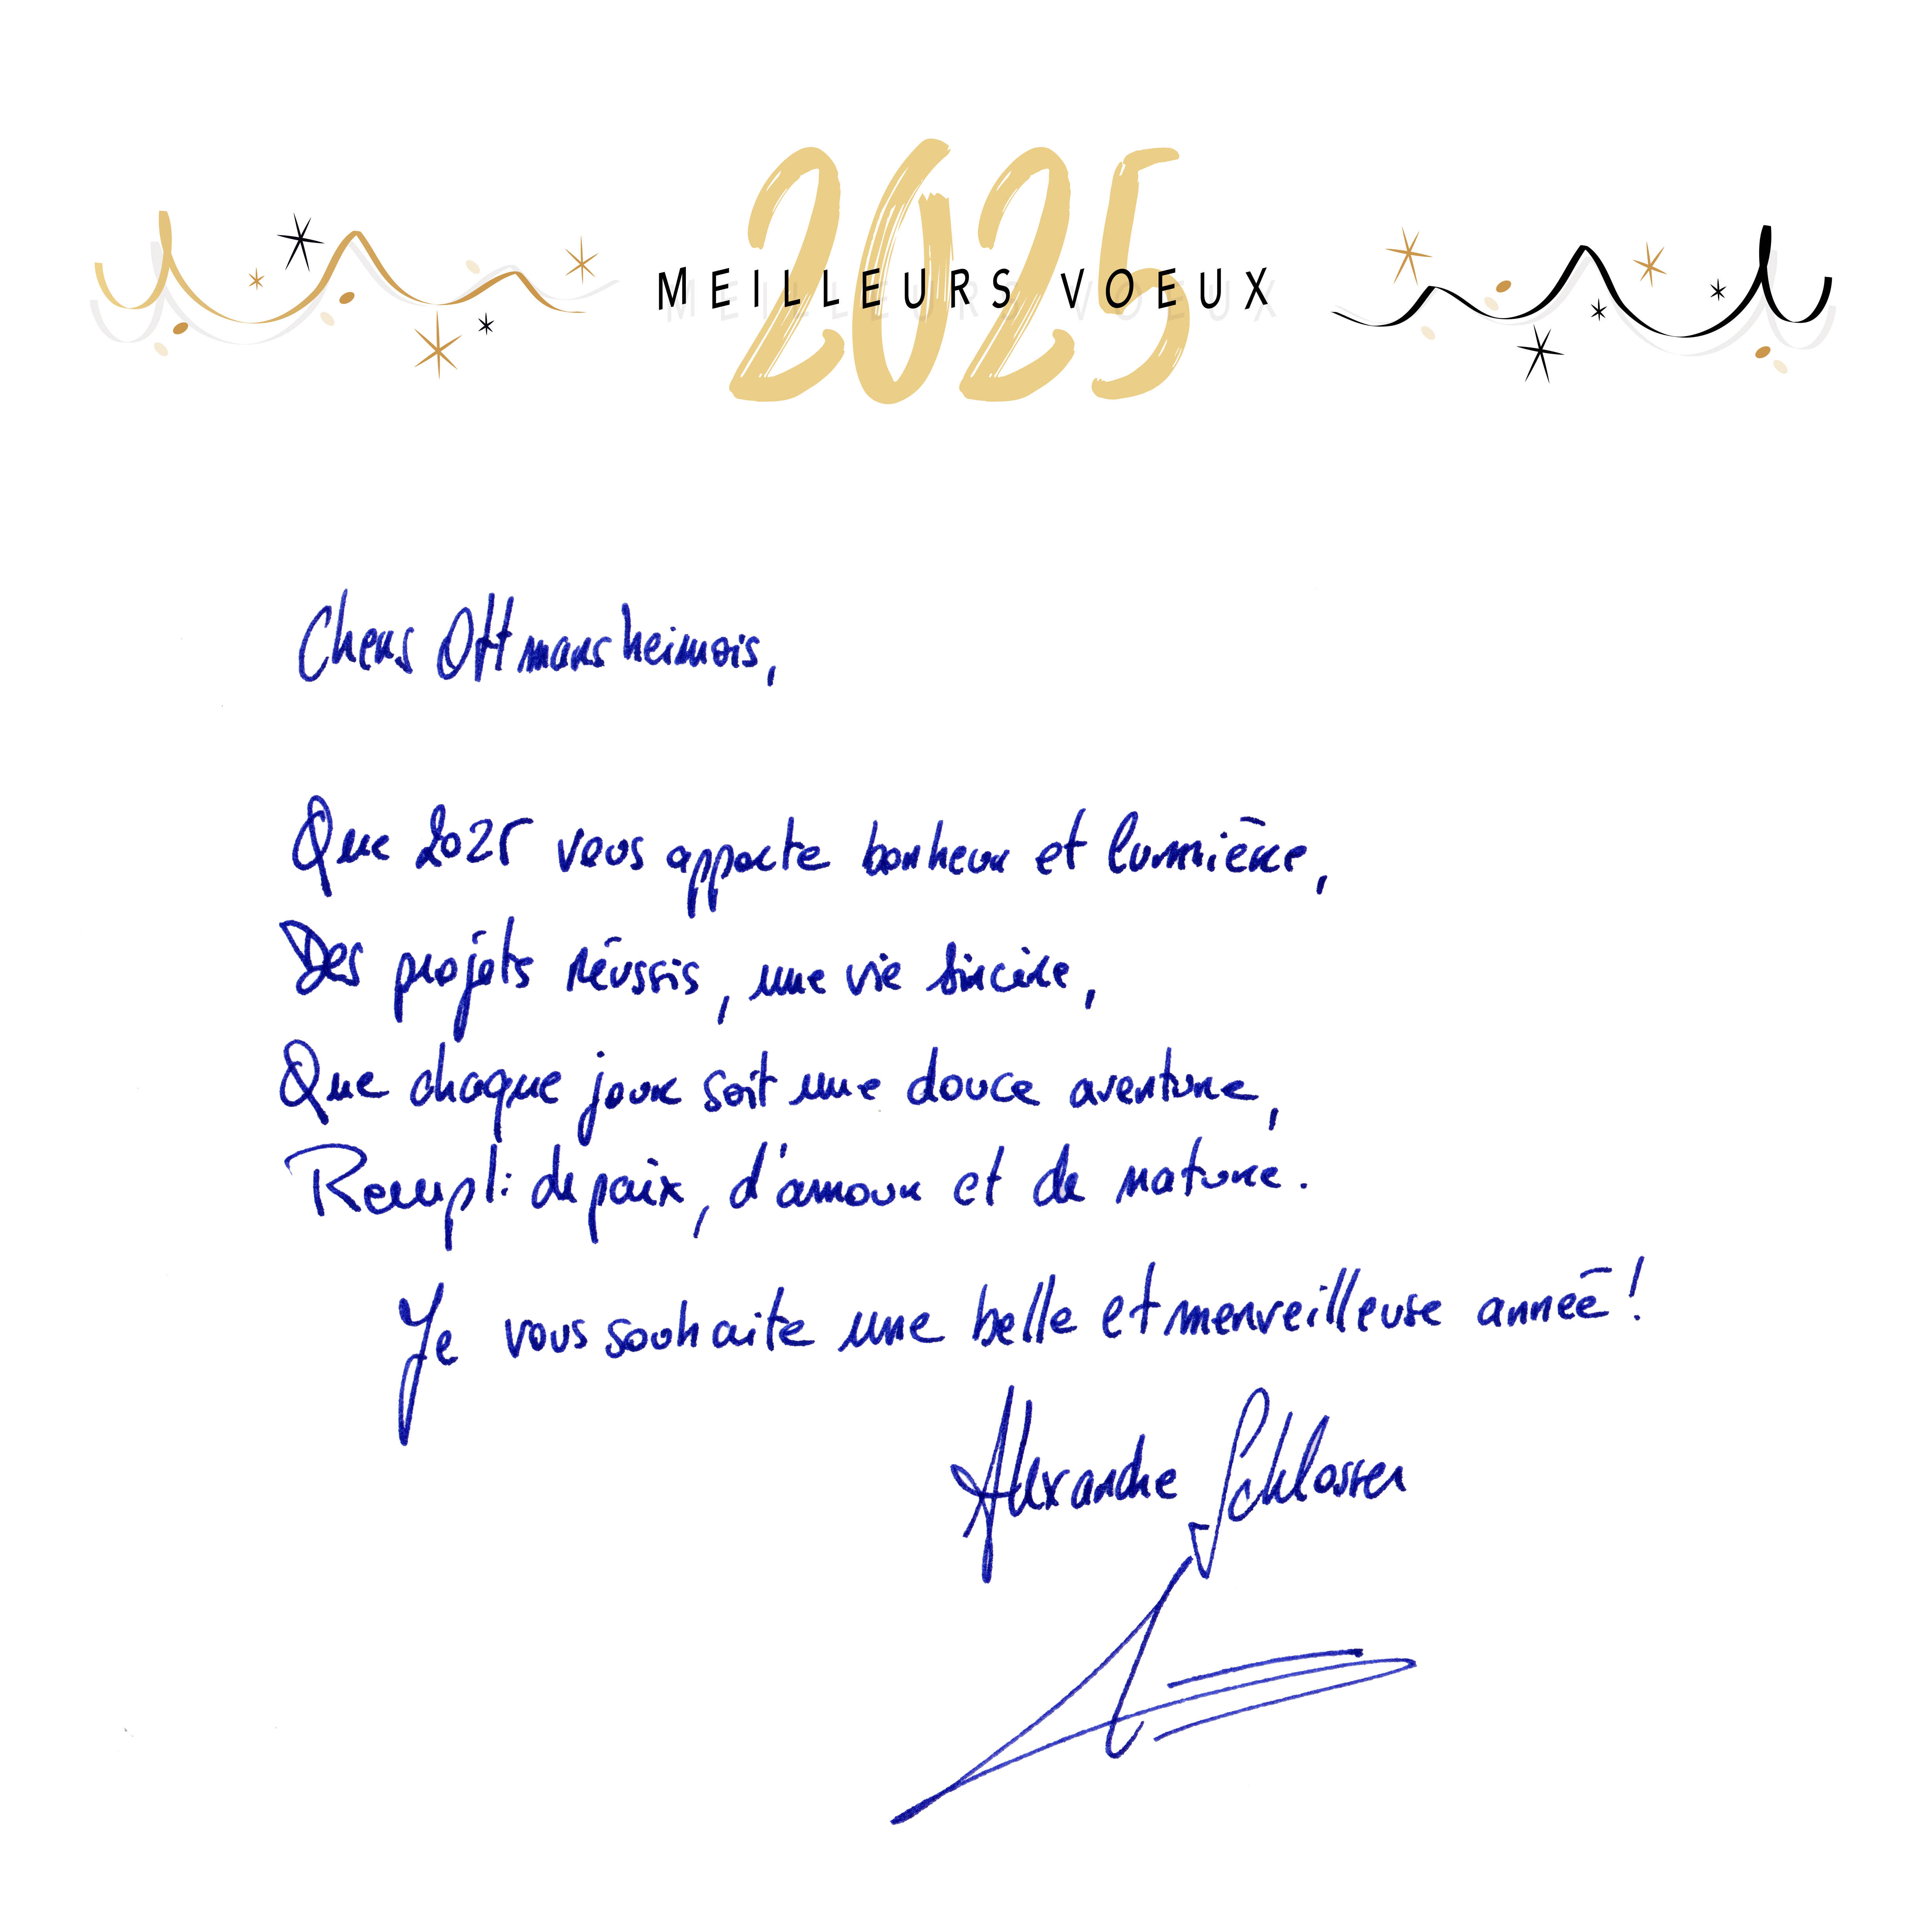 2025
MEILLEURS VOEUX
Chers Ottmarsheimois,
Que 2025 vous apporte bonheur et lumière,
Des projets réussis, une vie sincère,
Que chaque jour soit une douce aventure,
Rempli de paix, d'amour et de nature.
Je vous souhaite une belle et merveilleuse année !
Alexandre Schlosser